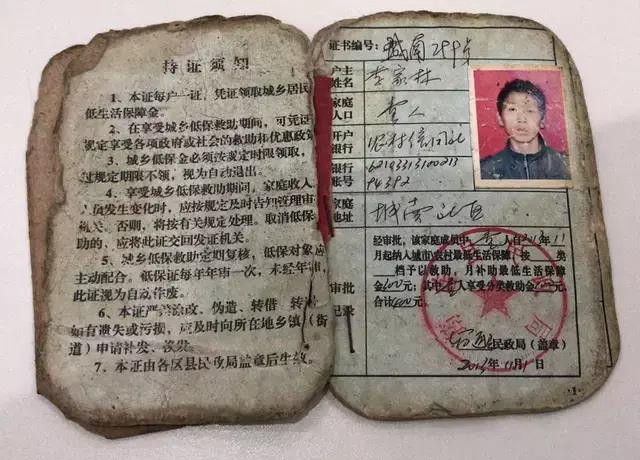 持证须知
1、本证每户一证，凭证领取城乡居民
低生活保障金。
2、在享受城乡低保救助期间，可凭证
规定享受各项政府或社会的救助和优惠政策
3、城乡低保金必须按规定时限领取，
过规定期限不领，视为自动退出。
4、享受城乡低保救助期间，家庭收入
人员发生变化时，应按规定及时告知管理审
机关，否则，将按有关规定处理。取消低保
助的，应将此证交回发证机关。
5、城乡低保救助定期复核，低保对象应
主动配合。低保证每半年审一次，未经年审
此证视为自动作废。
6、本证严禁涂改、伪造、转借、转
如有遗失或污损，应及时向所在地乡镇（街
道）申请补发、换发。
7、本证由各区县民政局盖章后生效。
证书编号：
户主
姓名 李家林
家庭
人口 壹人
开户
银行
银行 6210331310021
账号 94392
家庭
地址
审批
记录
经审批，该家庭成员中 壹 人自 年11
月起纳入城市/农村最低生活保障，按 类
档予以救助，月补助最低生活保障
金 元；其中 人享受分类救助金 元，
合计 元。
民政局（盖章）
年11月1日
·1·